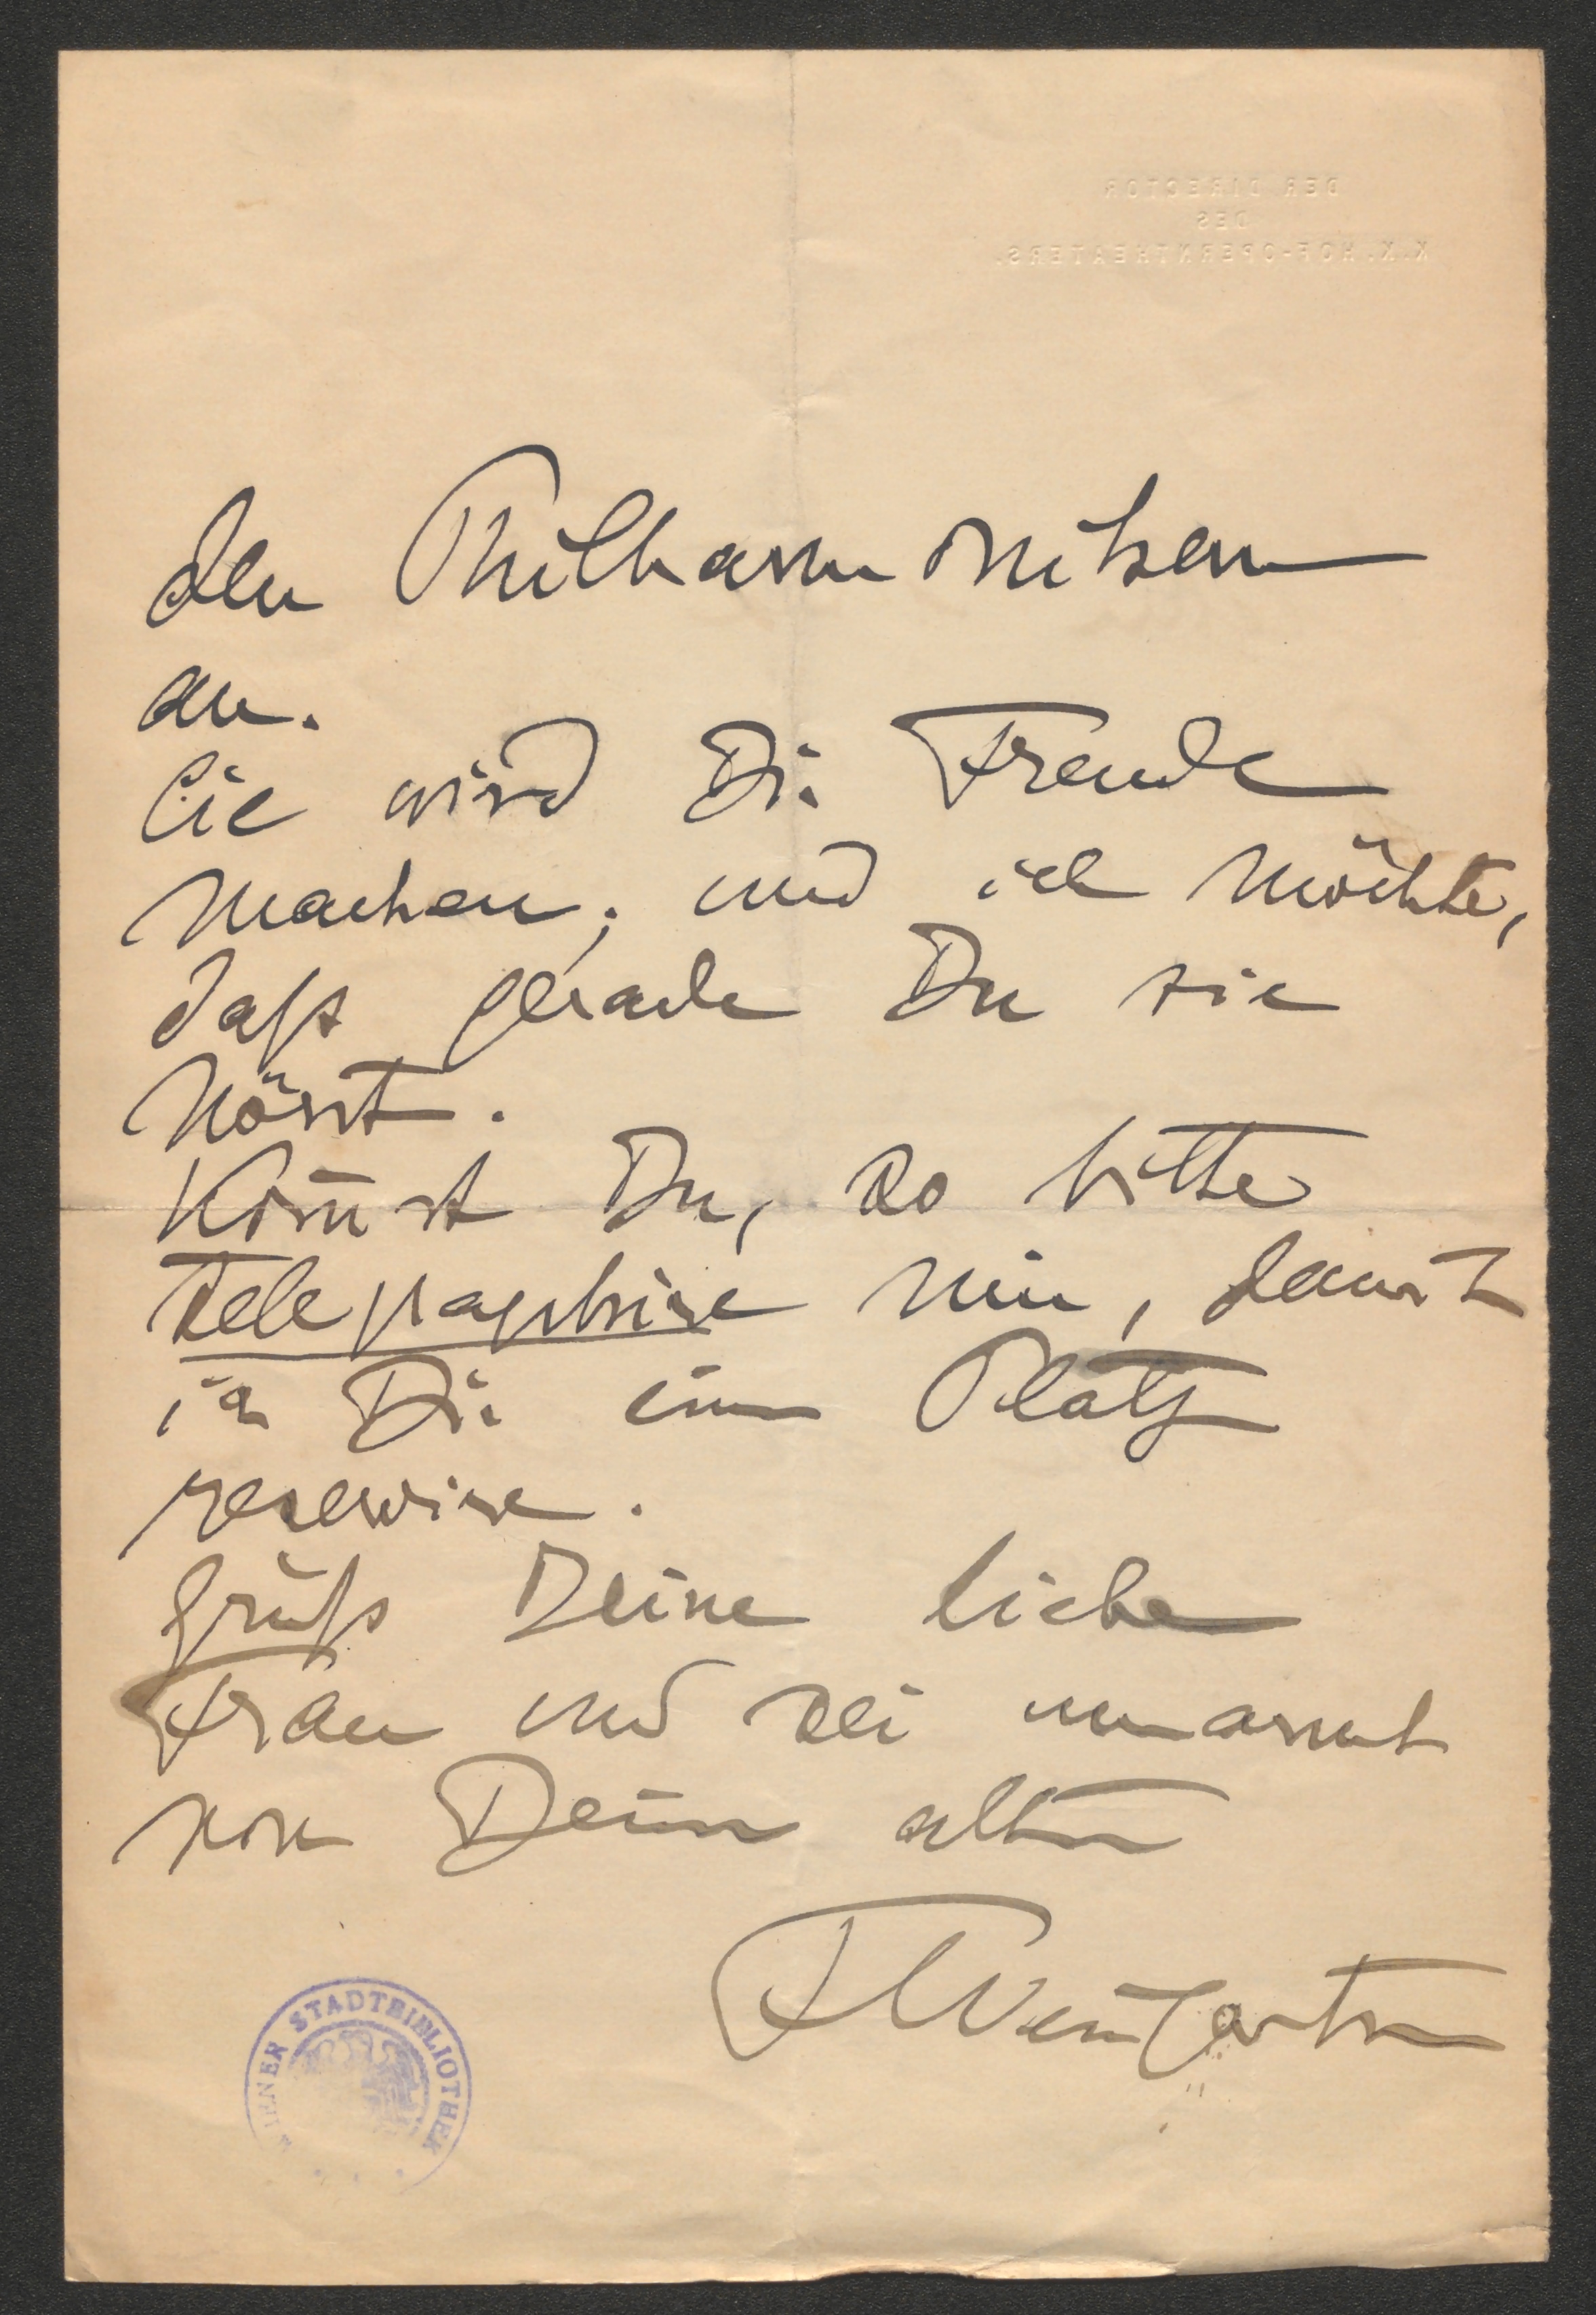 DER DIRECTOR
DES
K.K. HOF-OPERNTHEATERS.
den Philharmonikern
an.
Sie wird Dir Freude
machen; und ich möchte,
daß gerade Du sie
hörst.
Kom̄st Du, so bitte
telegraphire mir, damit
ich Dir einen Platz
reservire.
Grüß Deine liebe
Frau und sei umarmt
von Deinem alten
FWeingartner
WIENER STADTBIBLIOTHEK